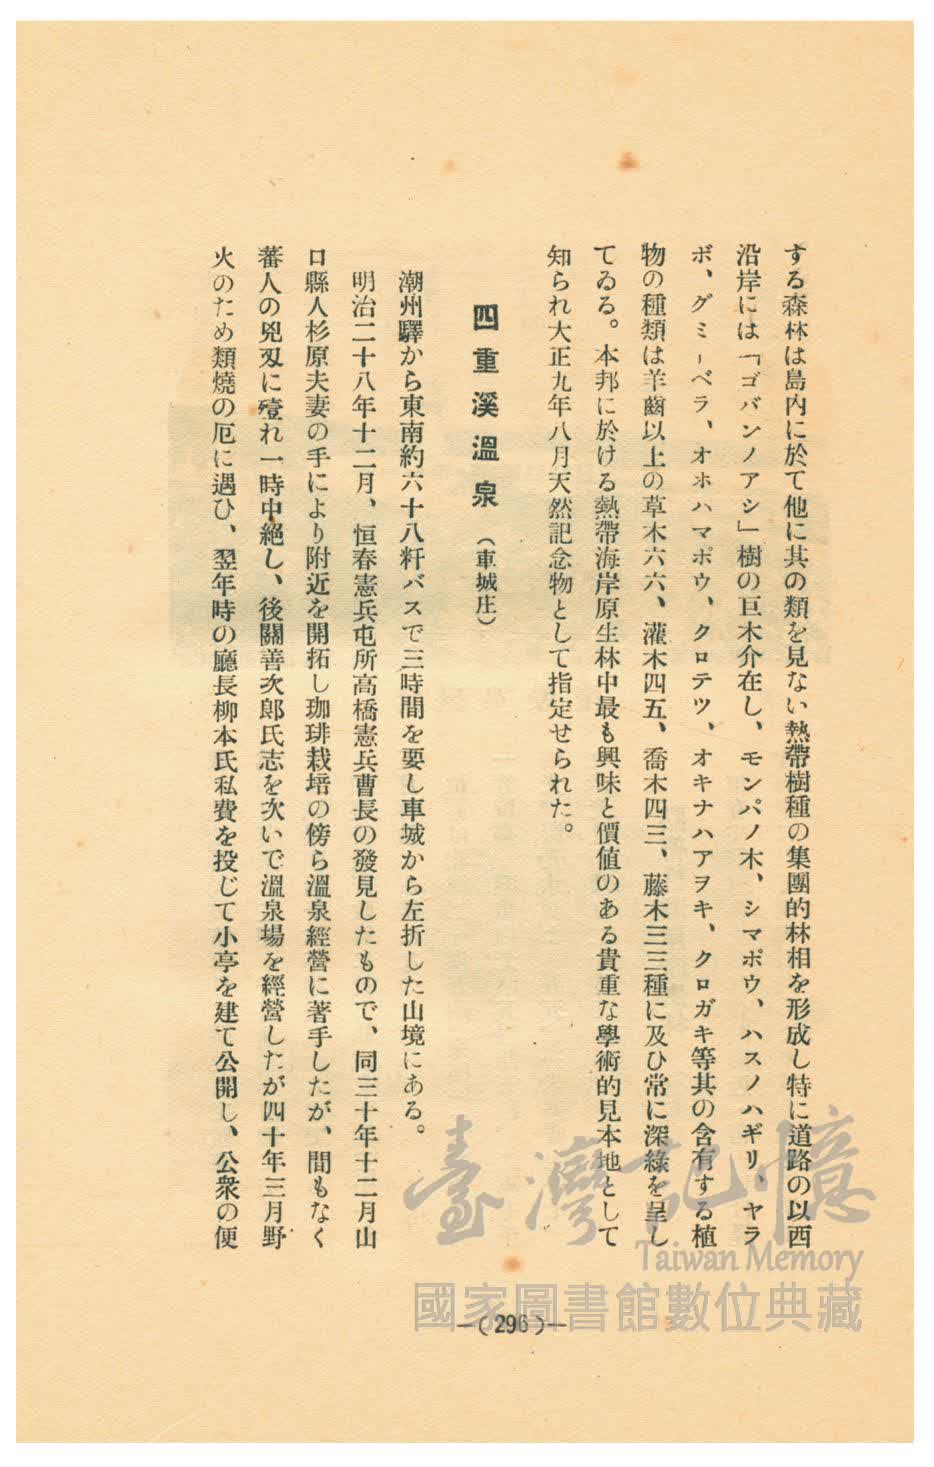 する森林は島內に於て他に其の類を見ない熱帶樹種の集團的林相を形成し特に道路の以西
沿岸には「ゴバンノアシ」樹の巨木介在し、モンパノ木、シマボウ、ハスノハギリ、ヤラ
ボ、グミーベラ、オホハマボウ、クロテツ、オキナハアヲキ、クロガキ等其の含有する植
物の種類は羊齒以上の草木六六、灌木四五、喬木四三、藤木三三種に及ひ常に深綠を呈し
てゐる。本邦に於ける熱帶海岸原生林中最も興味と價値のある貴重な學術的見本地として
知られ大正九年八月天然記念物として指定せられた。
四重溪溫泉（車城庄）
潮州驛から東南約六十八粁バスで三時間を要し車城から左折した山境にある。
明治二十八年十二月、恒春憲兵屯所高橋憲兵曹長の發見したもので、同三十年十二月山
口縣人杉原夫妻の手により附近を開拓し珈琲栽培の傍ら溫泉經營に著手したが、間もなく
蕃人の兇刄に殪れ一時中絕し、後關善次郞氏志を次いで溫泉場を經營したが四十年三月野
火のため類燒の厄に遇ひ、翌年時の廳長柳本氏私費を投じて小亭を建て公開し、公衆の便
—(296)—
臺灣記憶
Taiwan Memory
國家圖書館數位典藏